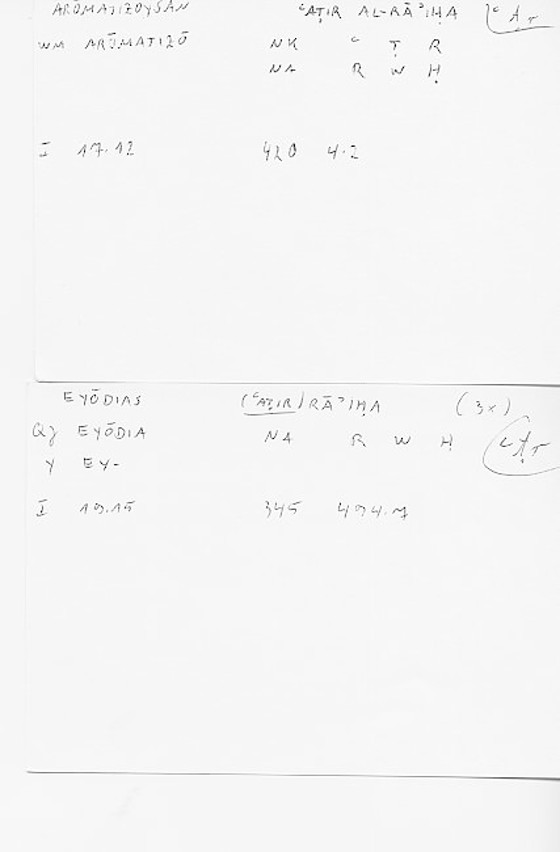 ARŌMATIZOYSAN ʿAṬIR AL-RĀʾIḤA ʿAṬR
WM ARŌMATIZŌ NK ʿ Ṭ R
NA R W Ḥ
I 17.12 420 4.2
EYŌDIAS (ʿAṬIR) RĀʾIḤA (3x)
QJ EYŌDIA NA R W Ḥ ʿAṬR
Y EY-
I 19.15 345 494.7